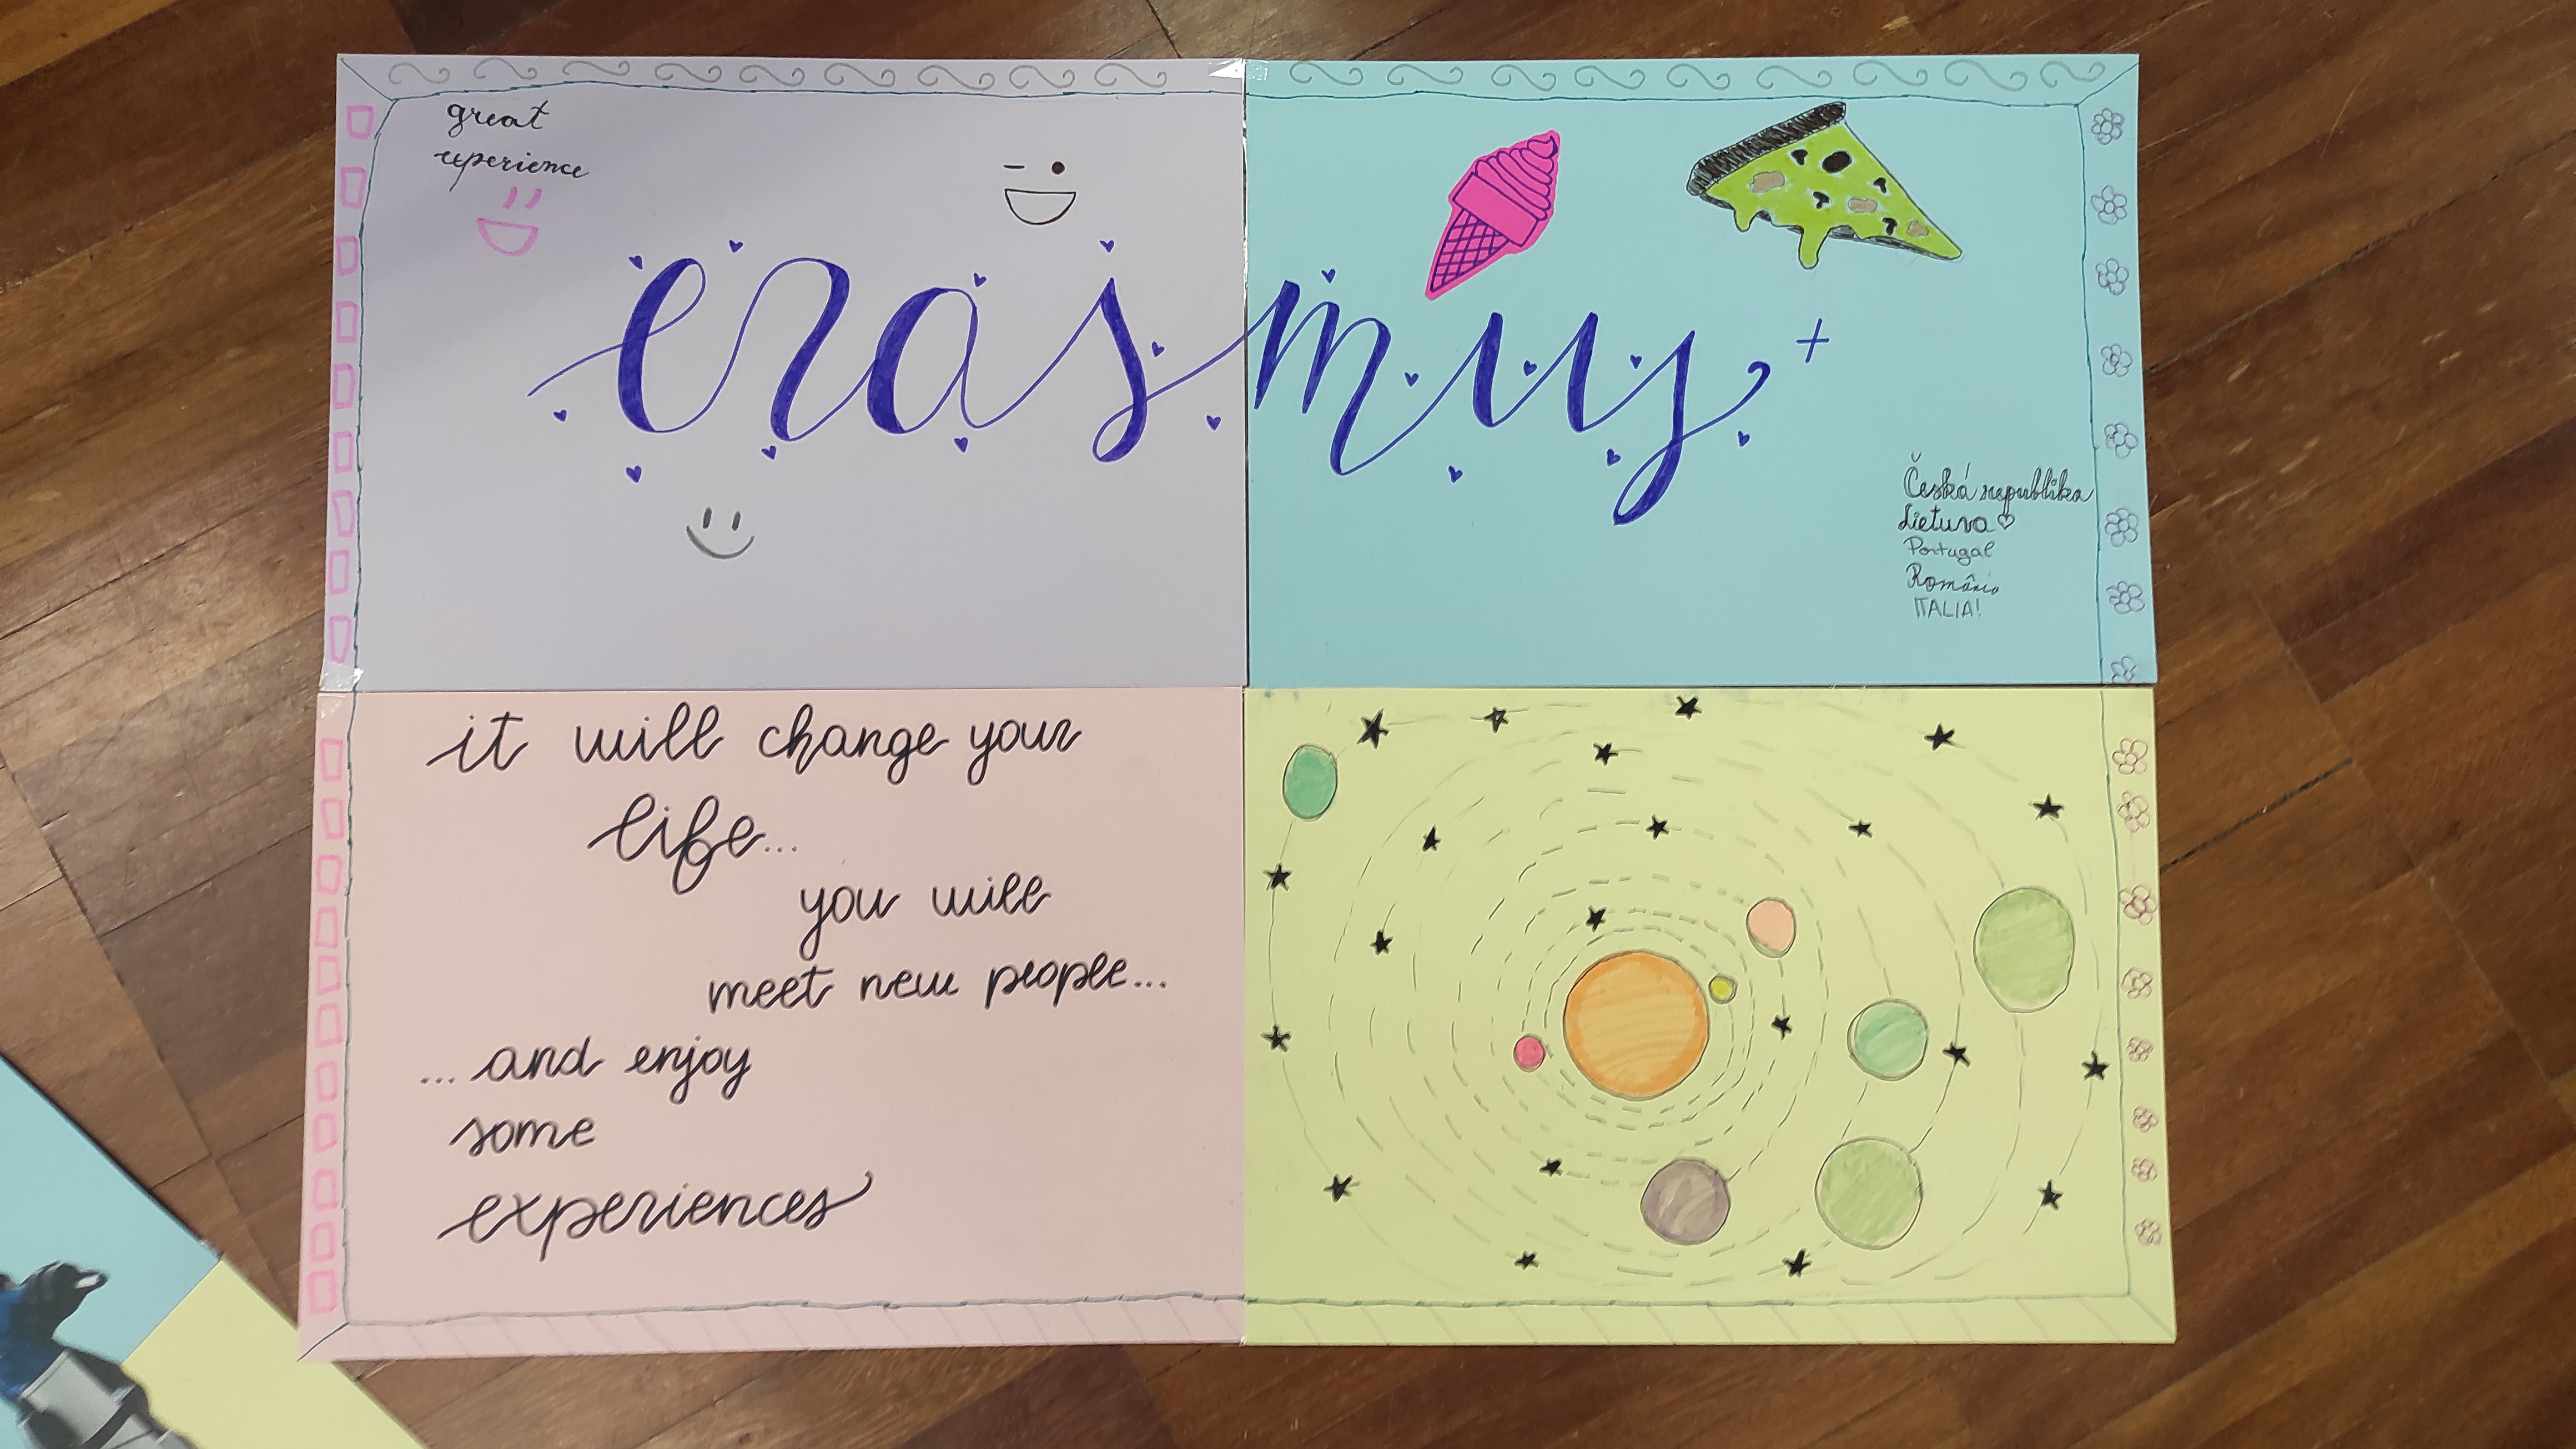 great
experience
erasmus +
Česká republika
Lietuva ♡
Portugal
România
ITALIA!
it will change your
life...
you will
meet new people...
...and enjoy
some
experiences